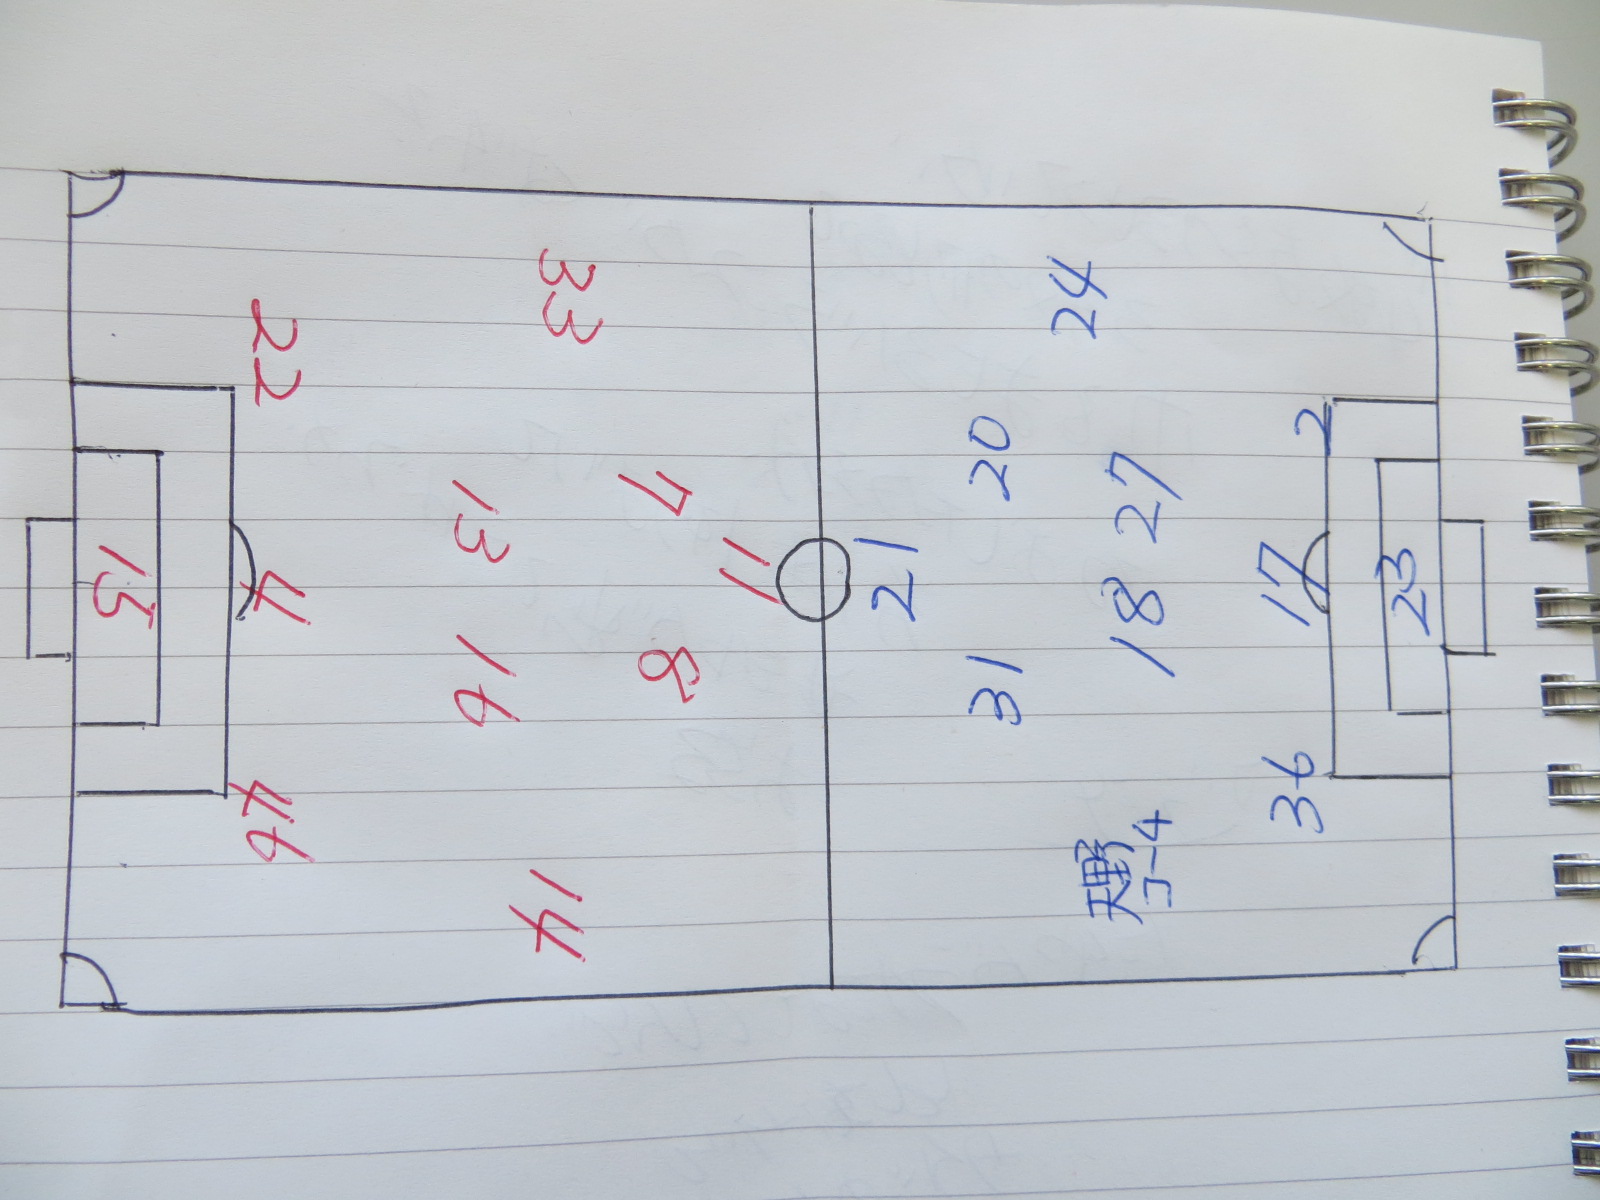 15
22
4
46
33
13
16
14
7
8
11
21
20
31
24
27
18
天野
コー4
2
17
36
23